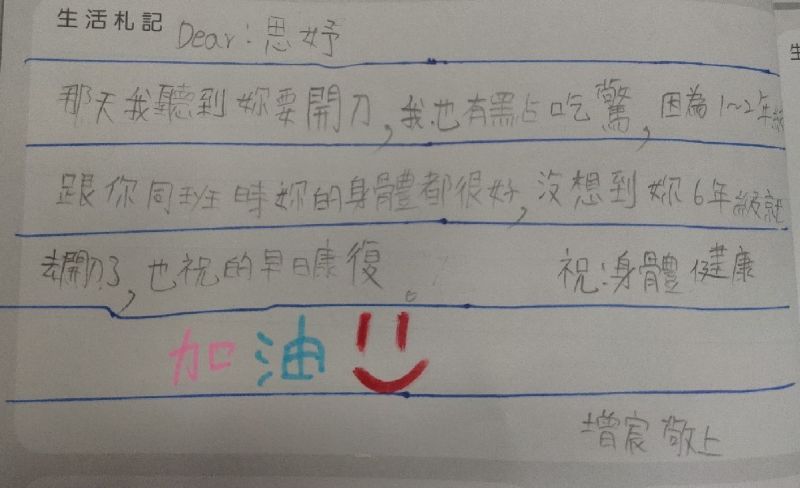 生活札記 Dear:思妤
那天我聽到妳要開刀,我也有點吃驚,因為1~2年級
跟你同班時妳的身體都很好,沒想到妳6年級就
去開刀了,也祝的早日康復。 祝:身體健康
加油
增宸敬上
生